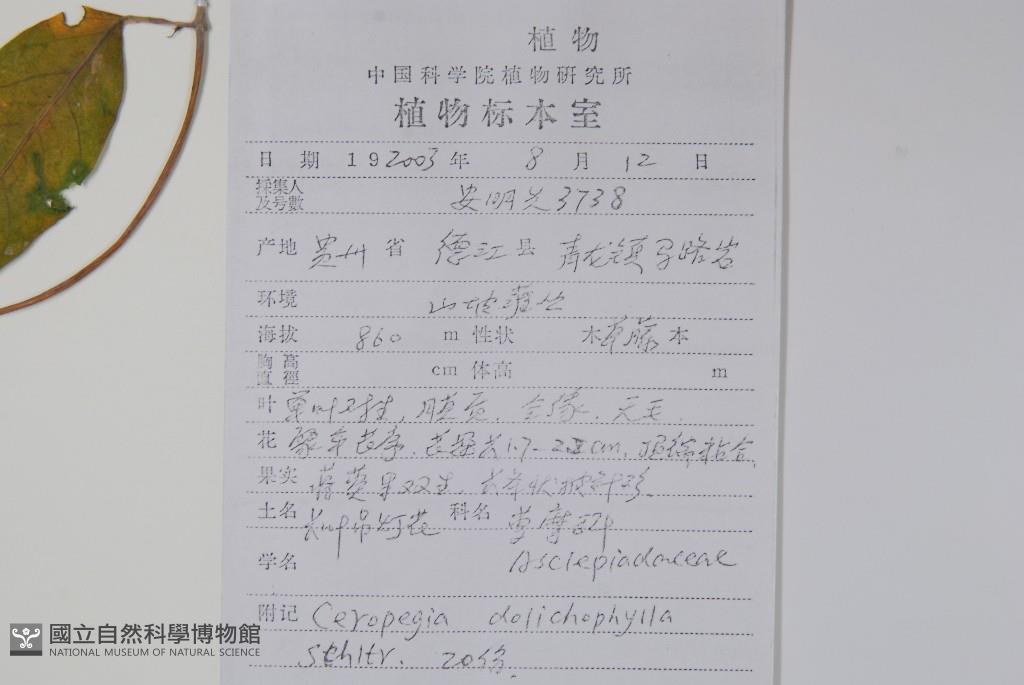 植物
中国科学院植物研究所
植物标本室
日 期 192003年 8 月 12 日
採集人及号數 安明先3738
产地 贵州 省 德江 县 青龙镇 路岩
环境 山坡灌丛
海拔 860 m 性状 木草藤本
胸高直徑 cm 体高 m
叶 单叶对生, 膜质, 全缘, 无毛.
花 聚伞花序, 花 长1.7-2 cm, 顶端粘合.
果实 蓇葖果双生, 长 状披针形.
土名 长叶吊灯花 科名 萝摩科
学名 Asclepiadaceae
附记 Ceropegia dolichophylla
Schltr. 20份.
國立自然科學博物館
NATIONAL MUSEUM OF NATURAL SCIENCE